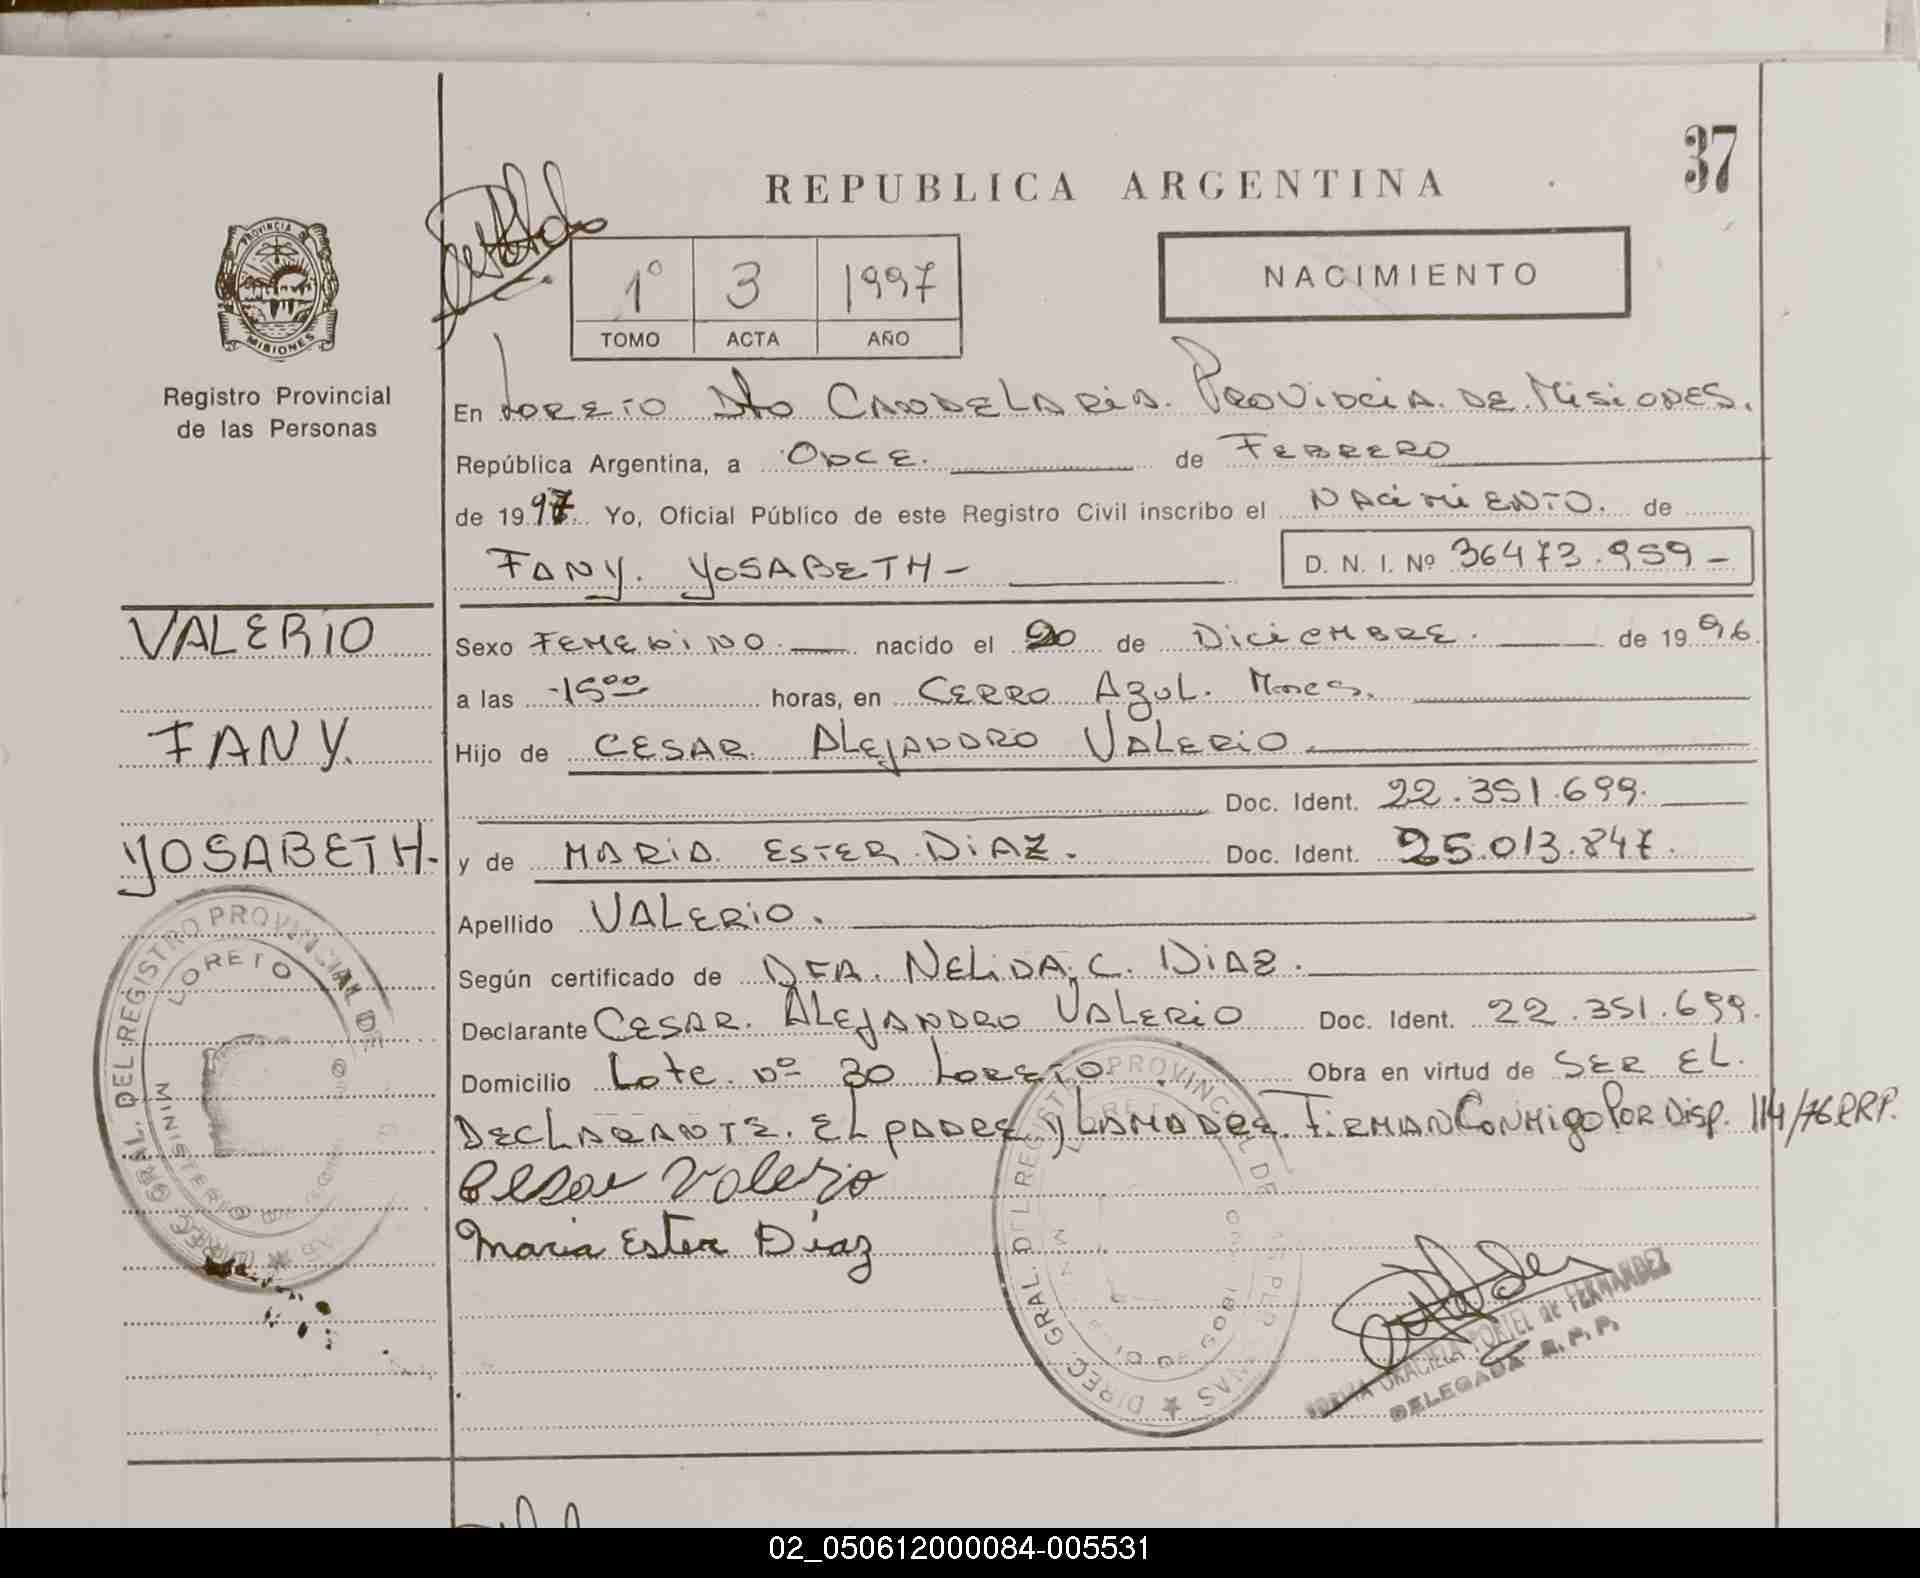 37
REPUBLICA ARGENTINA
PROVINCIA DE
MISIONES
Registro Provincial
de las Personas
1º 3 1997
TOMO ACTA AÑO
NACIMIENTO
En LORETO Dto CANDELARIA. PROVINCIA DE MISIONES.
República Argentina, a ONCE. de FEBRERO
de 1997 Yo, Oficial Público de este Registro Civil inscribo el NACIMIENTO. de
FANY. YOSABETH- D. N. I. Nº 36473.959-
VALERIO
FANY.
YOSABETH-
Sexo FEMENINO. nacido el 20 de DICIEMBRE. de 1996.
a las 15⁰⁰ horas, en CERRO AZUL. Mnes.
Hijo de CESAR. ALEJANDRO VALERIO
Doc. Ident. 22.351.699.
y de MARIA ESTER DIAZ. Doc. Ident. 25.013.847.
Apellido VALERIO.
Según certificado de DRA. NELIDA. C. DIAZ.
Declarante CESAR. ALEJANDRO VALERIO Doc. Ident. 22.351.699.
Domicilio Lote nº 30 LORETO. Obra en virtud de SER EL.
DECLARANTE. EL PADRE Y LA MADRE. FIRMAN CONMIGO POR DISP. 114/76 RRP.
Cesar Valerio
Maria Ester Diaz
DIREC. GRAL. DEL REGISTRO PROVINCIAL DE
LORETO
MINISTERIO
DIREC. GRAL. DEL REGISTRO PROVINCIAL DE
GRACIELA PORTEL de FERNANDEZ
DELEGADA R. P. P.
02_050612000084-005531